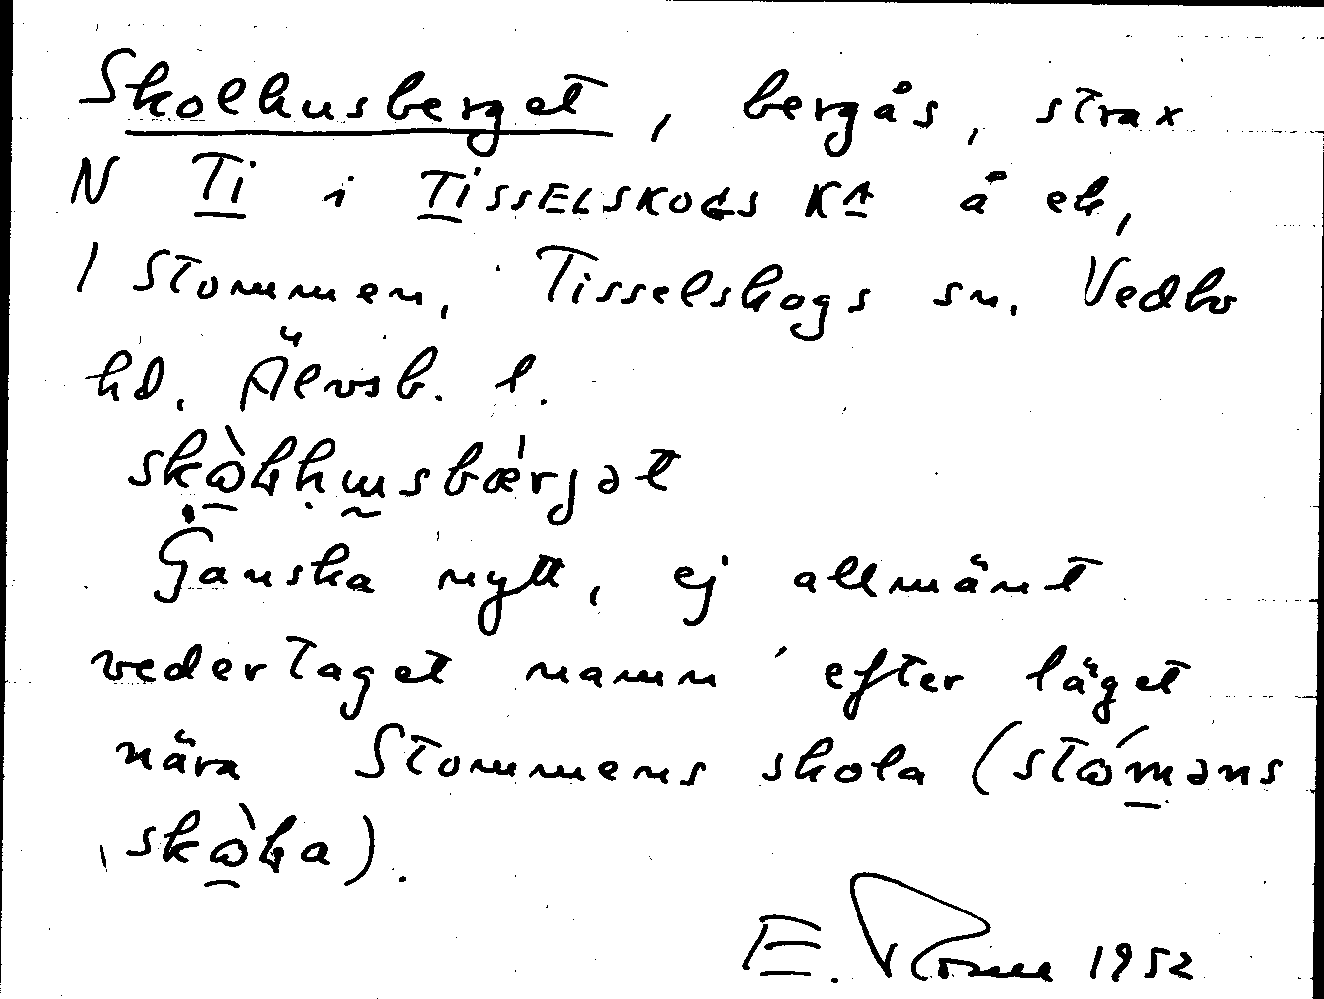 Skolhusberget, bergås, strax
N Ti i TISSELSKOGS KA å ek,
1 Stommen, Tisselskogs sn. Vedbo
hd. Älvsb. l.
Ganska nytt, ej allmänt
vedertaget namn efter läget
nära Stommens skola (
).
E. 1952